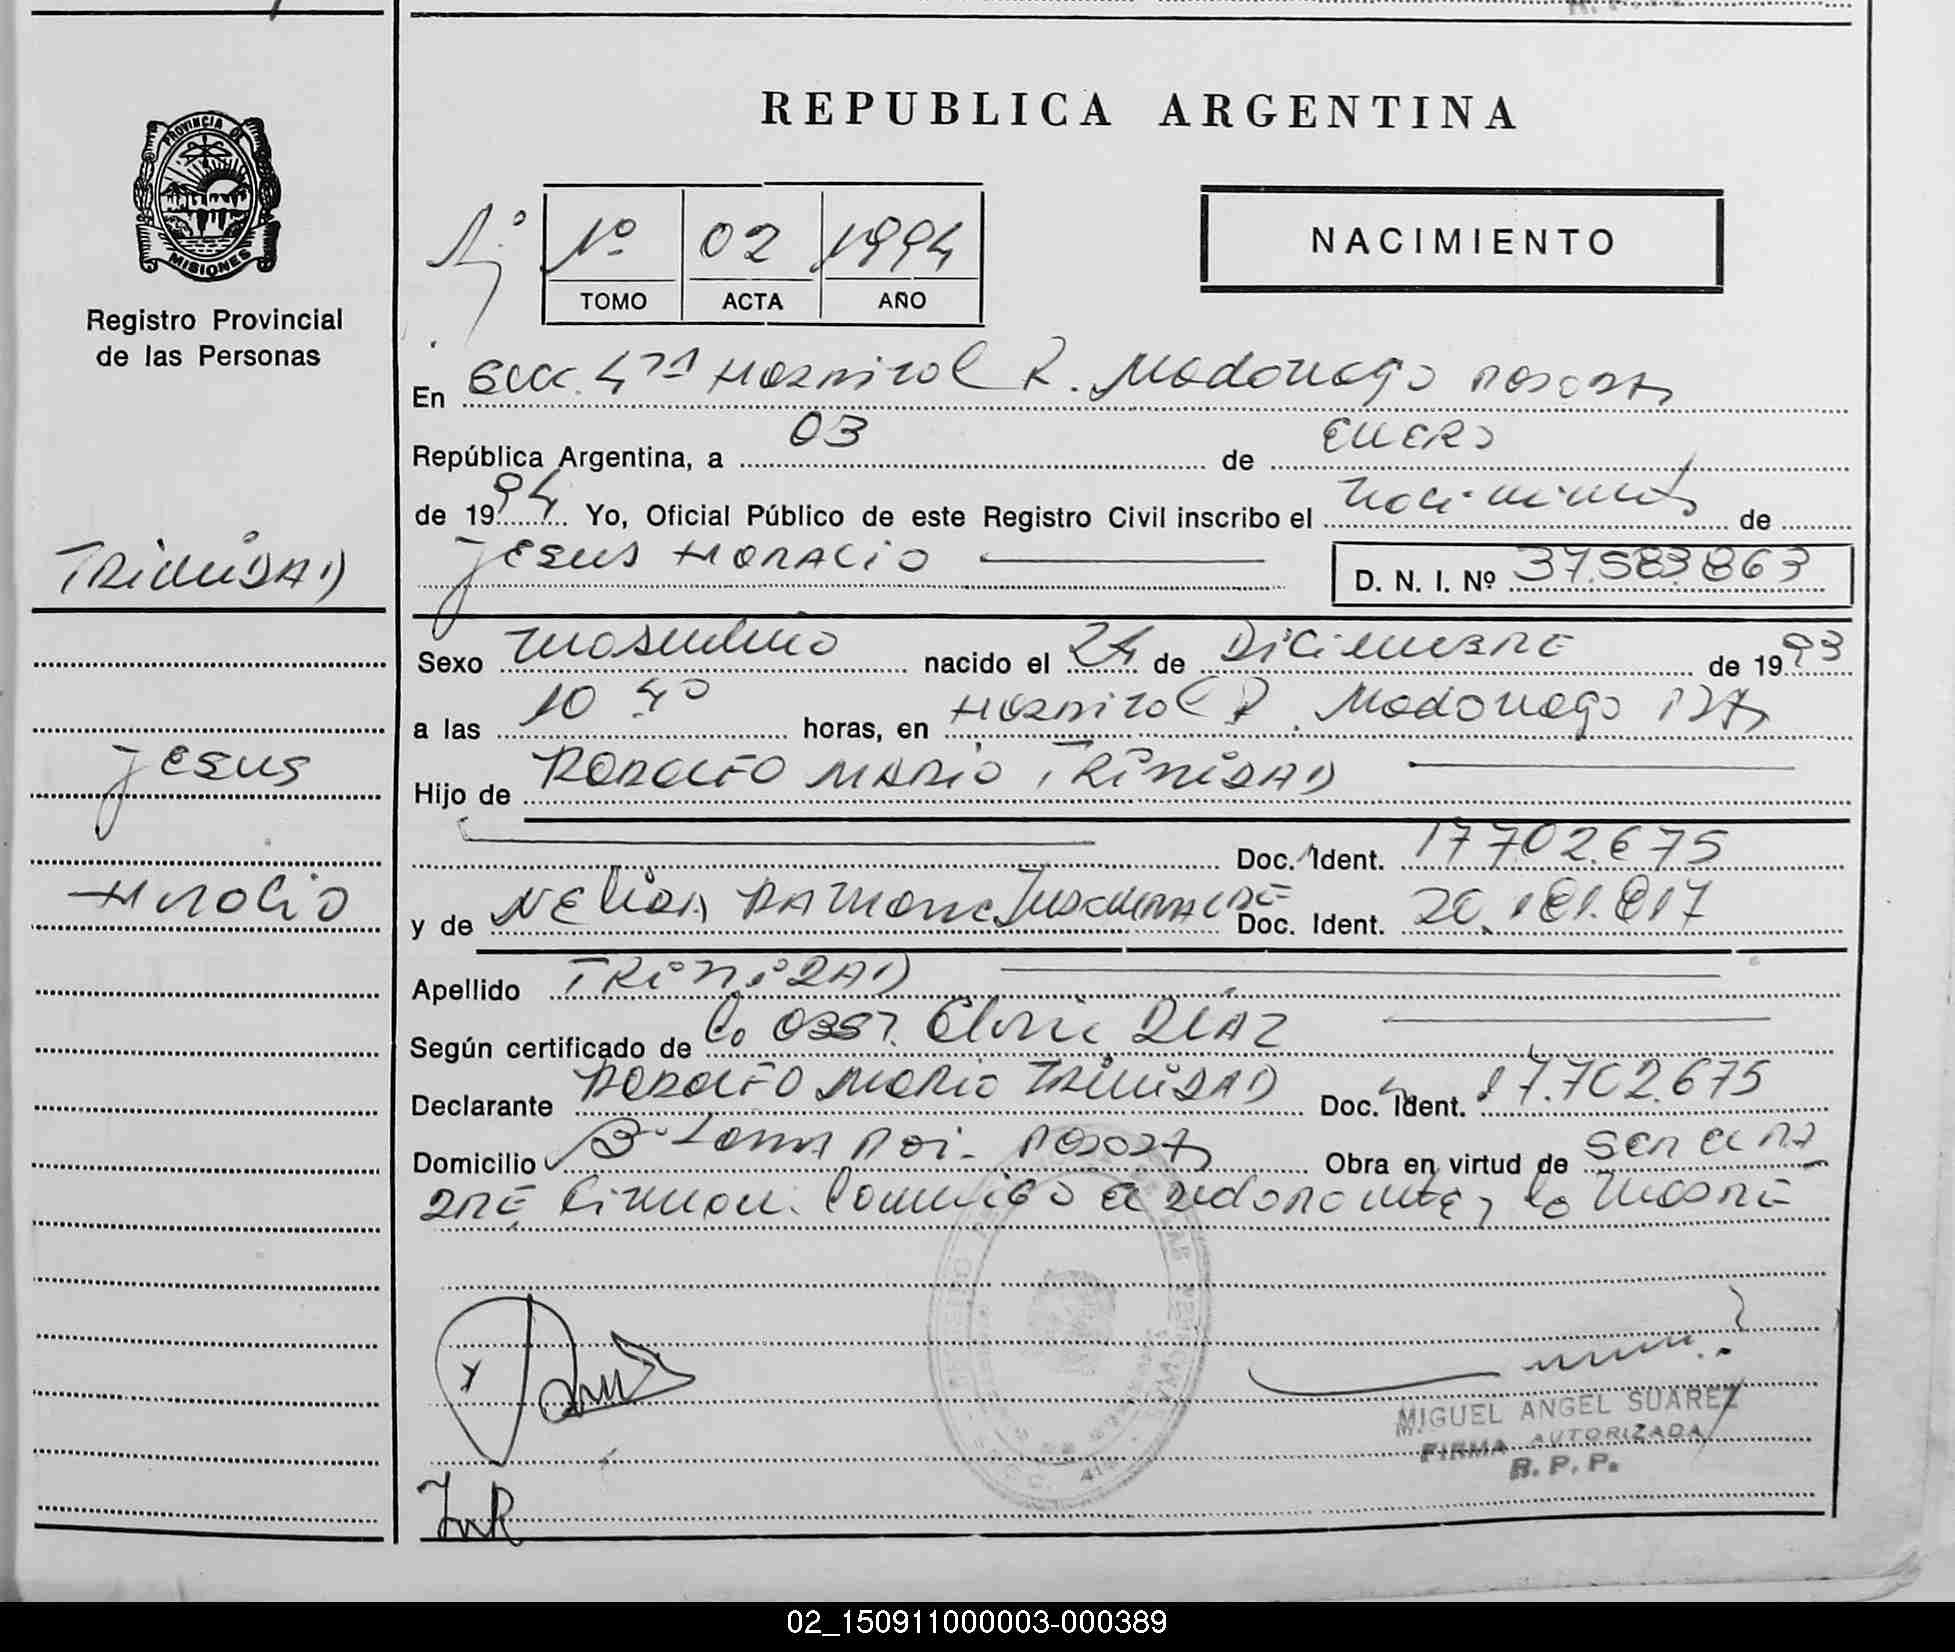 REPUBLICA ARGENTINA
PROVINCIA DE
MISIONES
Registro Provincial
de las Personas
Nº 02 1994
TOMO ACTA AÑO
NACIMIENTO
En Secc. 4ta Hospital R. Madariaga Posadas
República Argentina, a 03 de Enero
de 1994 Yo, Oficial Público de este Registro Civil inscribo el nacimiento de
TRINIDAD
JESUS HORACIO D. N. I. Nº 37.583.863
Sexo masculino nacido el 24 de Diciembre de 1993
a las 10 40 horas, en Hospital R. Madariaga Pdas
Jesus
Hijo de RODOLFO MARIO TRINIDAD
Doc. Ident. 17702.675
Horacio
y de NELIDA RAMONA Doc. Ident. 20.181.817
Apellido TRINIDAD
Según certificado de la Obst. Gloria DIAZ
Declarante RODOLFO MARIO TRINIDAD Doc. Ident. 17.702.675
Domicilio Bº Loma Poi - Posadas Obra en virtud de ser el pa
dre firman conmigo el declarante y la madre
MIGUEL ANGEL SUAREZ
FIRMA AUTORIZADA
R. P. P.
02_150911000003-000389